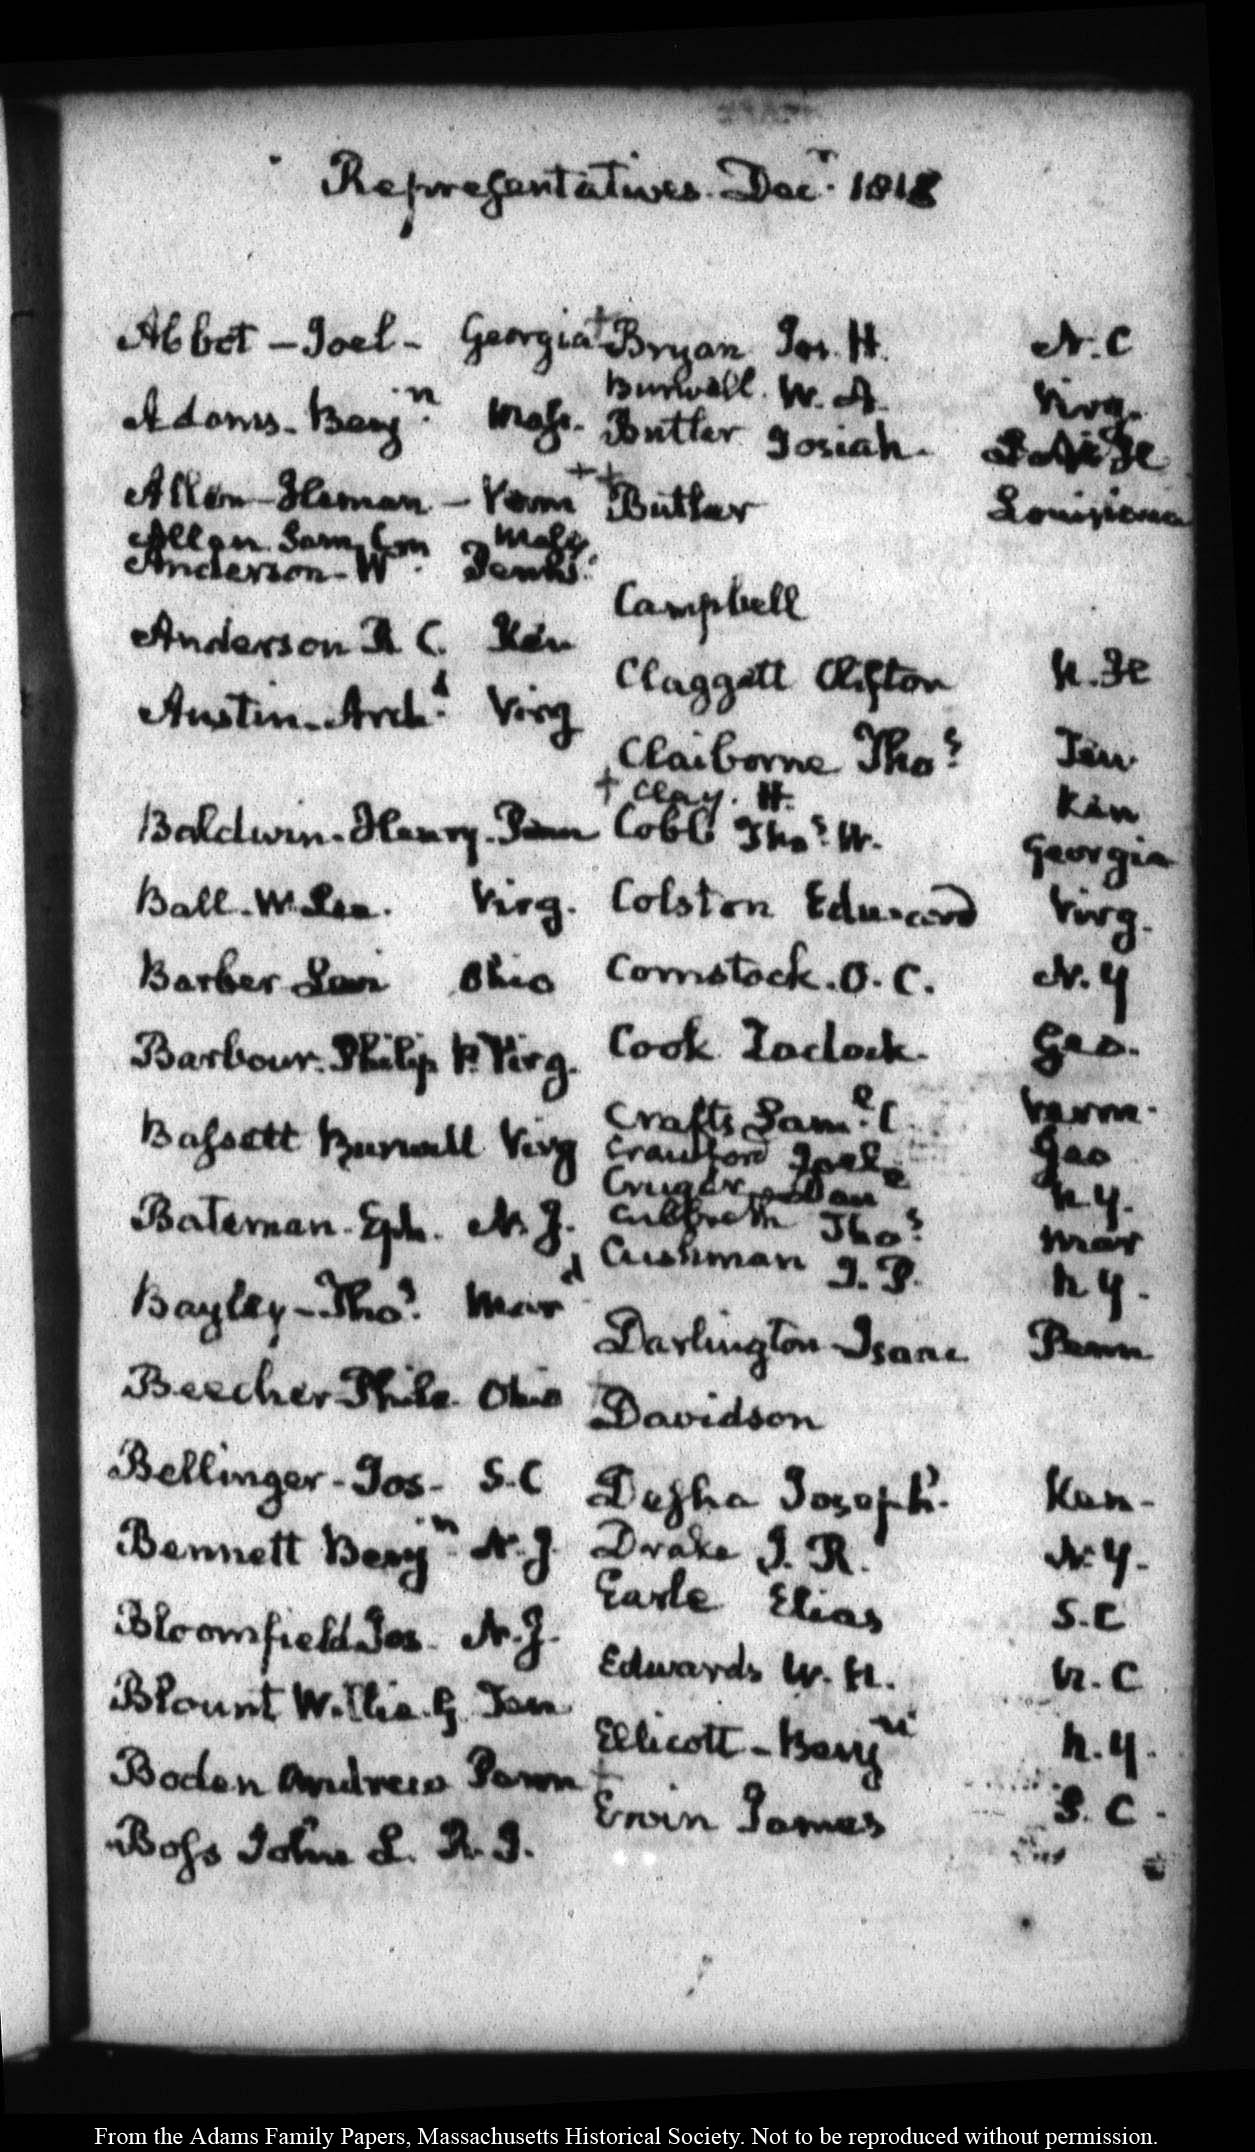 Representatives. Decr. 1818
Abbot - Joel - Georgia
Adams - Benjn. Mass.
Allen - Heman - Verm
Allen Sam. C. Mass
Anderson - Wm. Penns.
Anderson R C. Ken
Austin - Archd. Virg
Baldwin - Henry - Penn
Ball - W. Lee. Virg.
Barber Levi Ohio
Barbour. Philip P. Virg.
Bassett Burwell Virg
Bateman - Eph. N. J.
Bayley - Thos. Mard
Beecher - Phile. Ohio
Bellinger - Jos - S. C
Bennett Benjn. N. J.
Bloomfield Jos. N. J.
Blount Willie. G. Ten
Boden Andrew Penn
Boss John L. R. I.
+ Bryan Jos. H. N. C
Burwell. W. A. Virg.
Butler Josiah.
+ + Butler Louisiana
Campbell
Claggett Clifton N. H
Claiborne Thos. Ten
+ Clay. H. Ken
Cobb Thos. W. Georgia
Colston Edward Virg.
Comstock. O. C. N. Y
Cook Zadock. Geo.
Crafts Saml. C. Verm.
Crawford Joel Geo
Cruger Danl N. Y.
Culbreth Thos. Mar
Cushman J. P. N. Y.
Darlington - Isaac Penn
+ Davidson
Desha Joseph. Ken -
Drake J. R. N. Y.
Earle Elias S. C
Edwards W. H. N. C
Ellicott - Benjn N. Y.
+ Ervin James S. C.
From the Adams Family Papers, Massachusetts Historical Society. Not to be reproduced without permission.